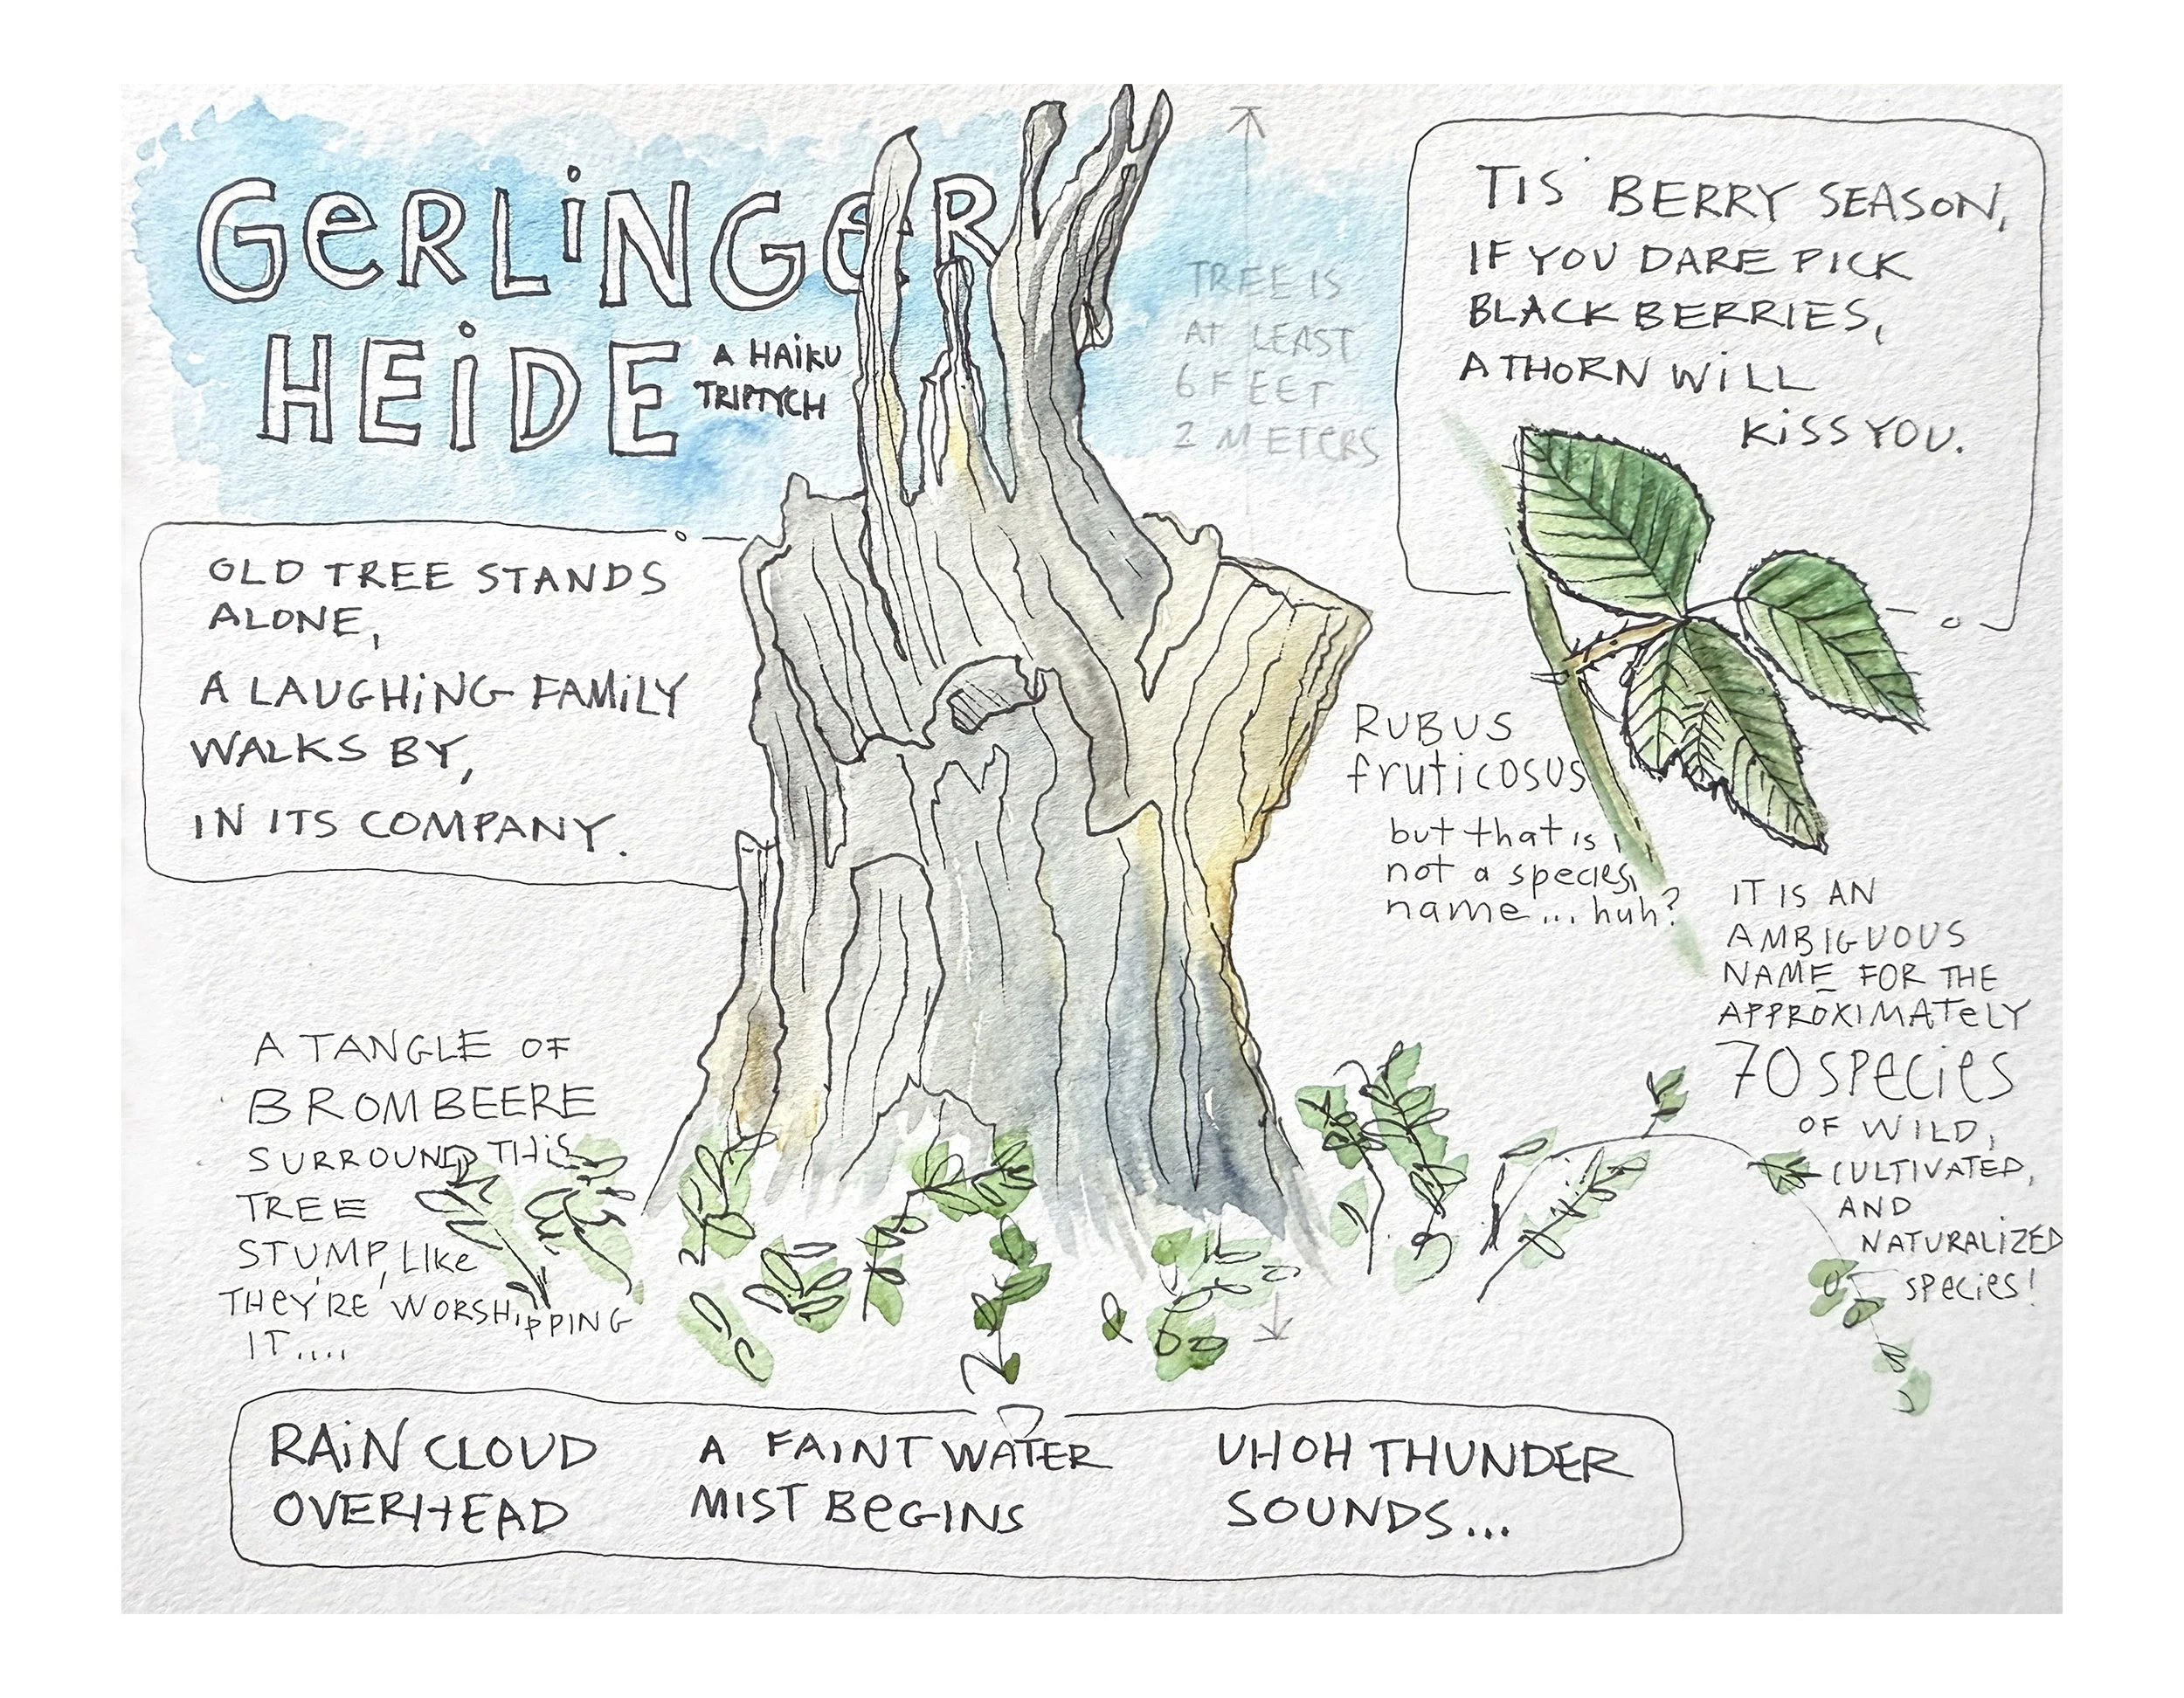 GeRLiNGeR
HEiDE
A HAiKU
TRIPTYCH
TREE IS
AT LEAST
6 FEET
2 METERS
TIS' BERRY SEASON,
IF YOU DARE PICK
BLACK BERRIES,
A THORN WiLL
KiSS YOU.
OLD TREE STANDS
ALONE,
A LAUGHiNG FAMiLY
WALKS BY,
IN ITS COMPANY.
RUBUS
fruticosus
but that is
not a species
name... huh?
IT IS AN
AMBIGUOUS
NAME FOR THE
APPROXIMATeLY
70 SPecies
OF WILD,
CULTIVATED,
AND
NATURALiZED
SPecies!
A TANGLE OF
BROMBEERE
SURROUND THiS
TREE
STUMP, LIke
THeY'RE WORSHiPPING
IT....
RAiN CLOUD
OVERHEAD
A FAINT WATER
MIST BeGINS
UHOH THUNDER
SOUNDS...